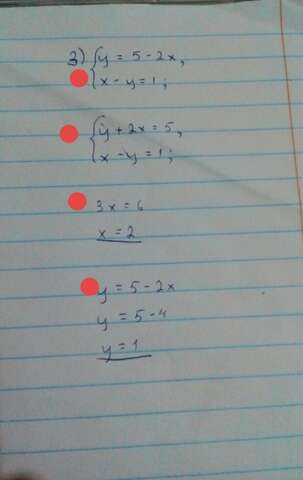 3) { y = 5 - 2x,
x - y = 1;
{ y + 2x = 5,
x - y = 1;
3x = 6
x = 2
y = 5 - 2x
y = 5 - 4
y = 1